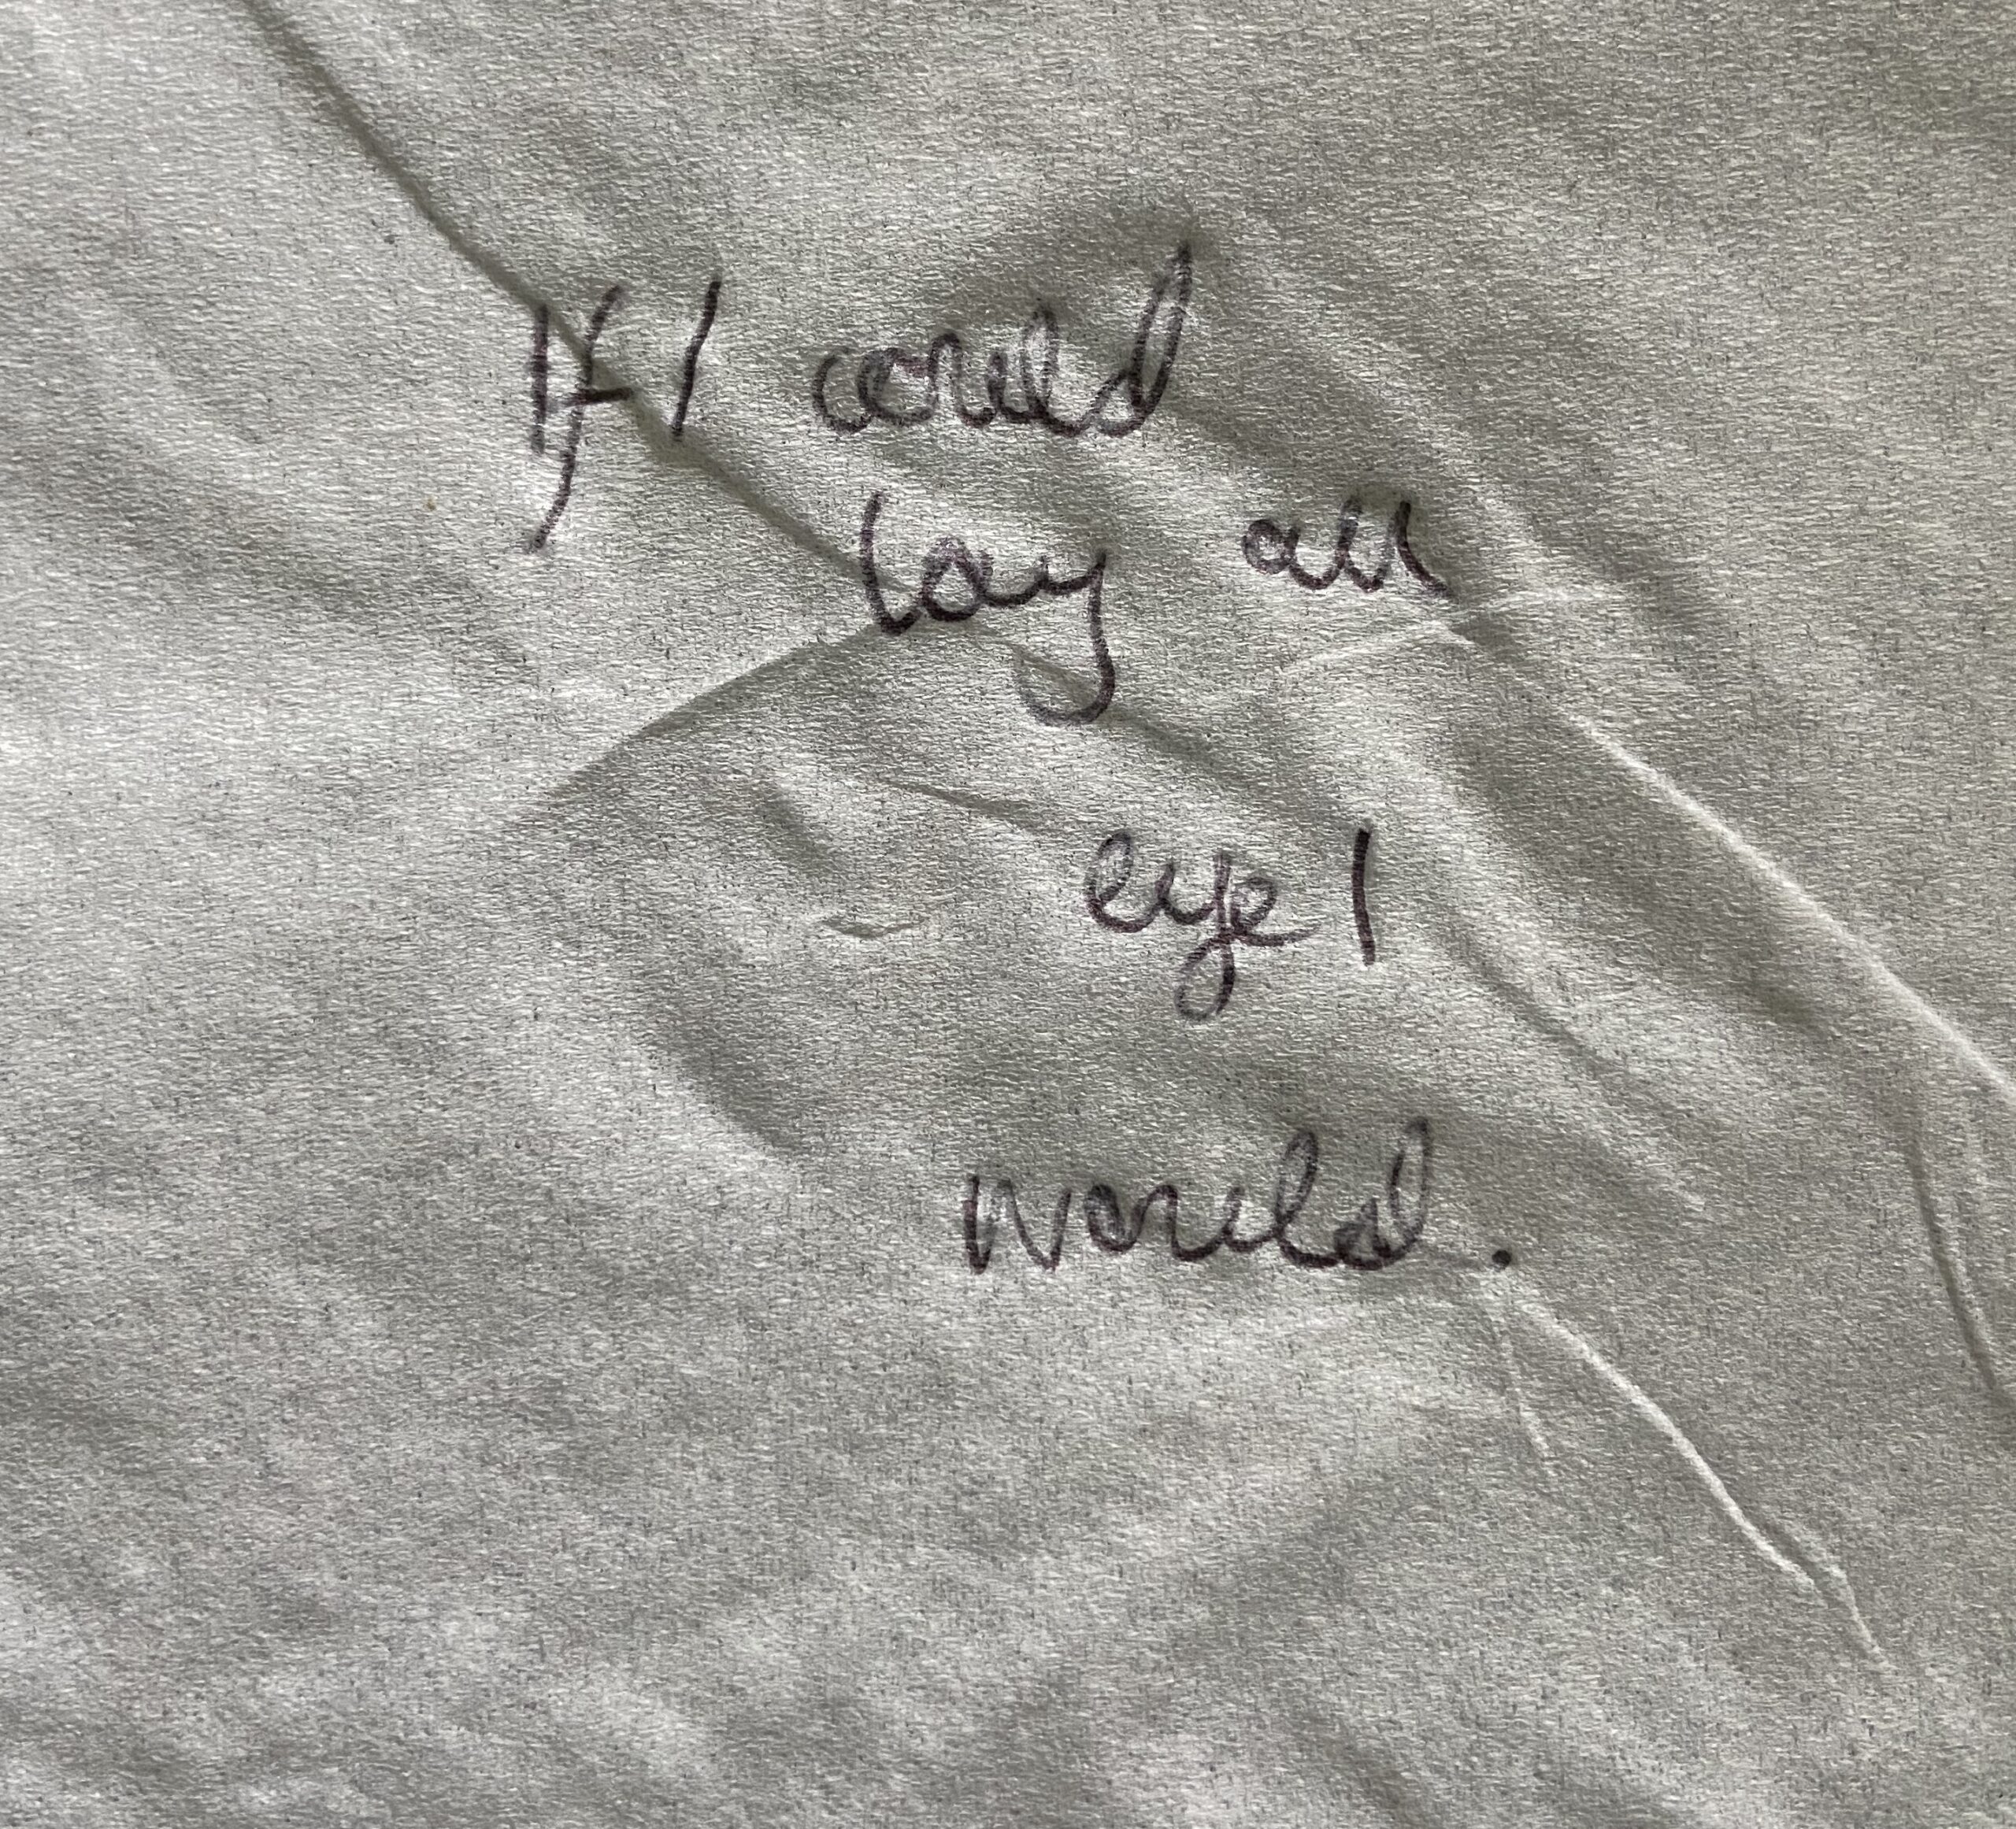 If I could
lay all
eye I
would.